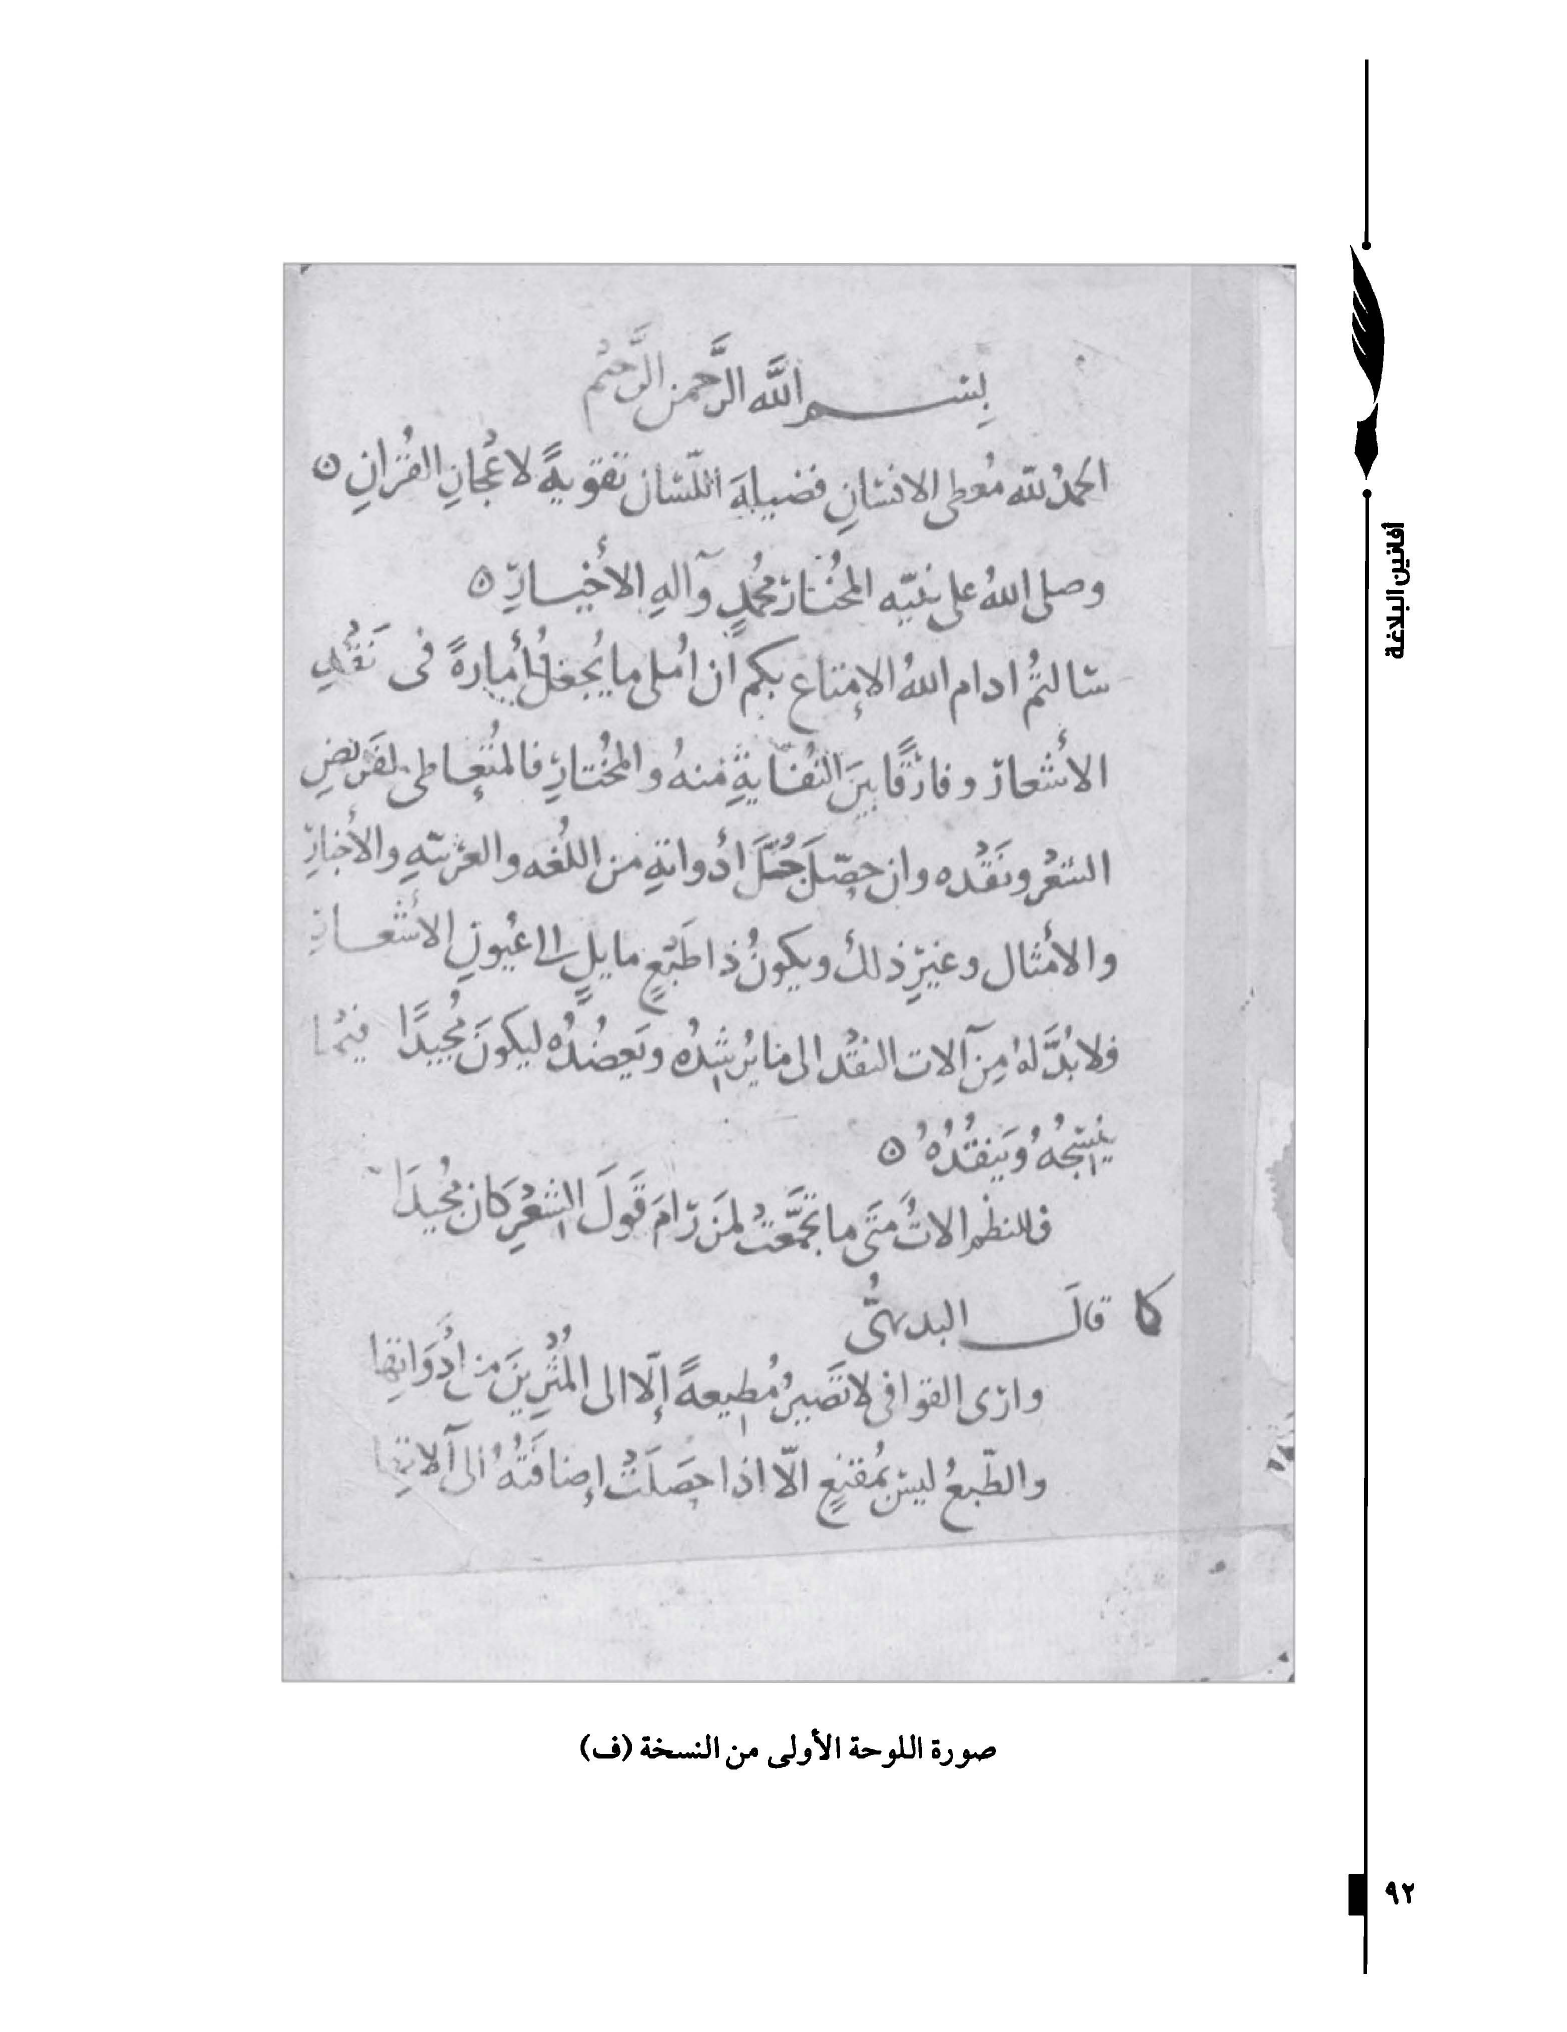 بســـم الله الرَّحمن الرَّحيم
الحمدُ لله مُعطى الانسانِ فضيلةَ اللّسان تقويةً لاعْجازِ القُرانِ ه
وصلى اللهُ على نبيّه المُختار محُمدٍ وآلهِ الأخيــارِ ه
سالتمُ ادام اللهُ الإمتاع بكم ان اُملى ما يُجعَلُ أمارةً فى نَقْدِ
الأشعار وفارقًا بينَ النُفَايةِ منهُ والمُختارِ فالمُتعاطى لقَريضِ
الشعْر ونَقْده وان حصّلَ جُلَّ ادْواتهِ من اللُغه والعرْبيّهِ والأخبارِ
والأمثال وغيرِ ذلك ويكونُ ذا طَبْعٍ مايلٍ الى عُيونِ الأشعــارِ
فلا بُدَّ لهُ مِن آلات النقْد الى ما يُرشِدُه ويَعضُدُه ليكونَ مُجيدًا فيْما
يَنسِجُهُ ويَنقُدُهُ ه
فللنظْم الاتٌ مَتَى ما تجمَّعَتْ لمَن رَامَ قَولَ الشِعْرِ كَان مجُيدَا
كما قالَ البديهىُّ
وارى القوافى لا تَصيرُ مُطيعةً إلّا الى المُثْرِينَ من أدَوَاتِها
والطّبعُ ليسَ بمُقنِعٍ الّا اذا حصَلَتْ إضافَتُهُ الى آلاتِها
صورة اللوحة الأولى من النسخة (ف)
أفانين البلاغة
٩٢